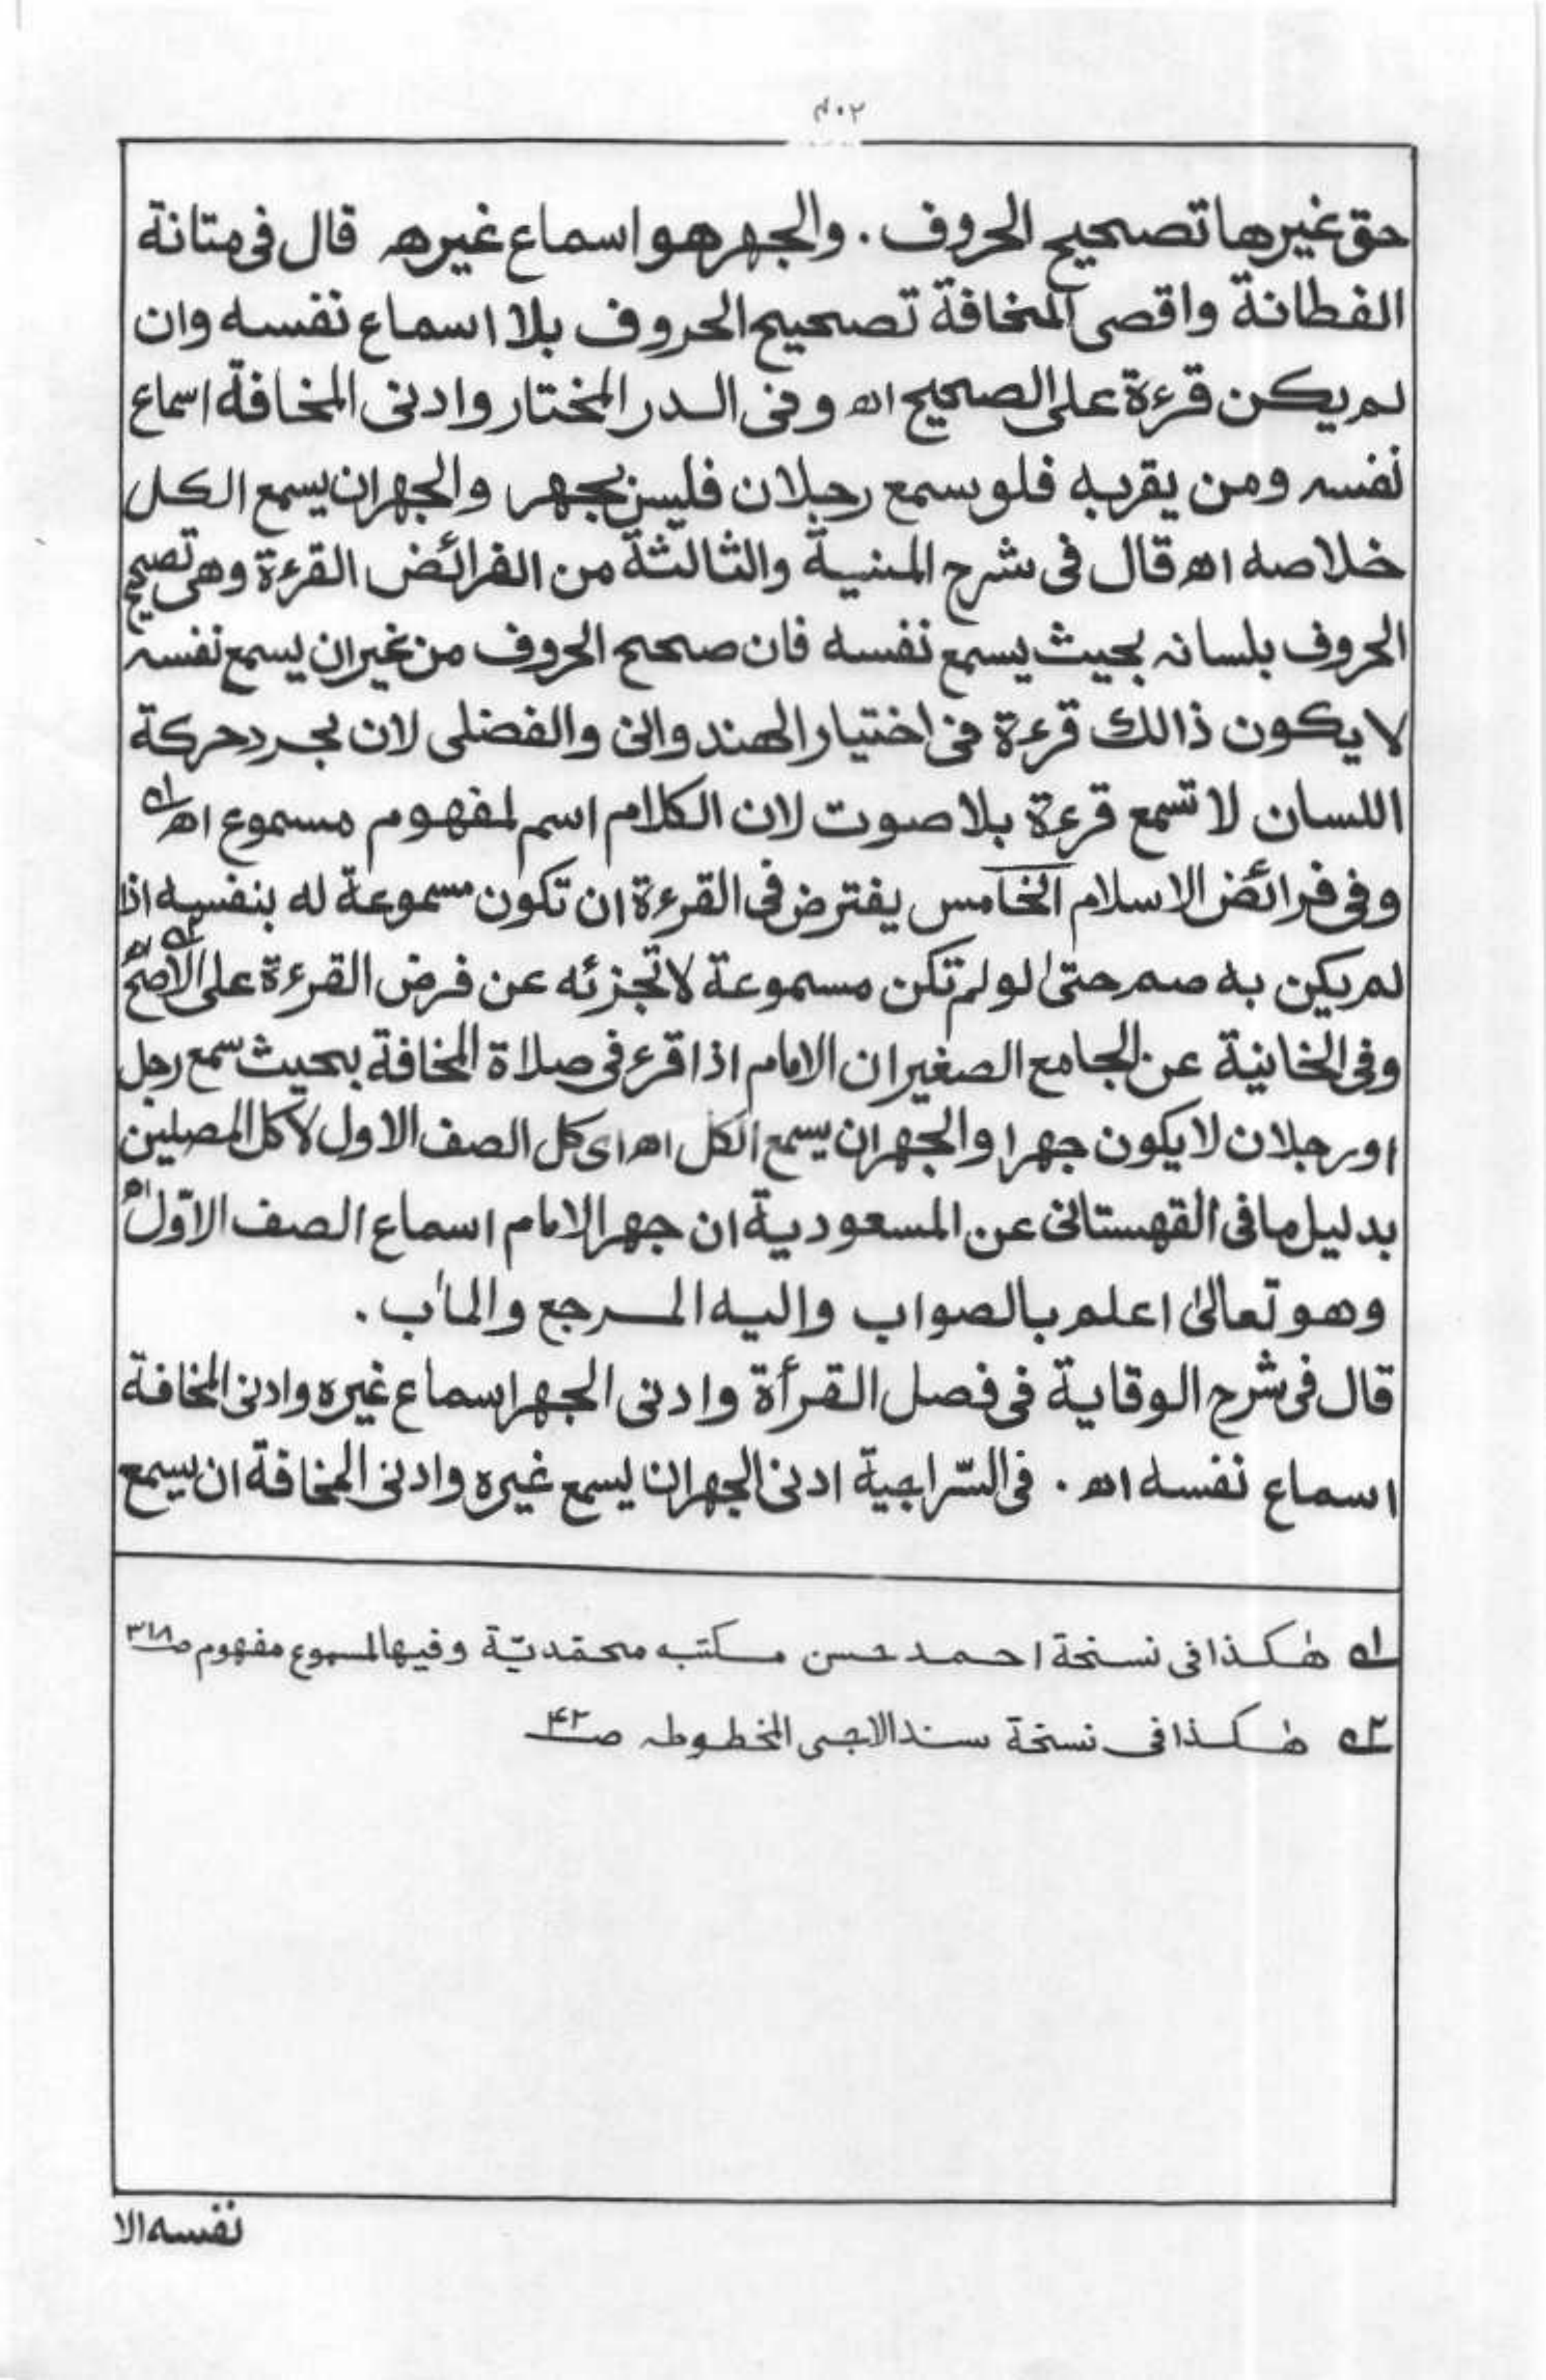 ٤٠٢
حق غيرها تصحيح الحروف . والجهر هو اسماع غيره قال فى متانة
الفطانة واقصى المخافة تصحيح الحروف بلا اسماع نفسه وان
لم يكن قرءة على الصحيح اھ وفى الدر المختار وادنى المخافة اسماع
نفسه ومن يقربه فلو سمع رجلان فليس بجهر والجهر ان يسمع الكل
خلاصه اھ قال فى شرح المنية والثالثة من الفرائض القرءة وهى تصحيح
الحروف بلسانه بحيث يسمع نفسه فان صحح الحروف من غير ان يسمع نفسه
لا يكون ذالك قرءة فى اختيار الهندوانى والفضلى لان مجرد حركة
اللسان لا تسمع قرءة بلا صوت لان الكلام اسم لمفهوم مسموع اھ ١ه
وفى فرائض الاسلام الخامس يفترض فى القرءة ان تكون مسموعة له بنفسه اذا
لم يكن به صمم حتىٰ لو لم تكن مسموعة لا تجزئه عن فرض القرءة على الأصحّ اھ ٢ه
وفى الخانية عن الجامع الصغير ان الامام اذا قرء فى صلاة المخافة بحيث سمع رجل
او رجلان لا يكون جهرا والجهر ان يسمع الكل اھ اى كل الصف الاول لا كل المصلين
بدليل ما فى القهستانى عن المسعودية ان جهر الامام اسماع الصف الاوّل اھ
وهو تعالىٰ اعلم بالصواب واليه المرجع والمأب .
قال فى شرح الوقاية فى فصل القرأة وادنى الجهر اسماع غيره وادنى المخافة
اسماع نفسه اھ . فى السّراجية ادنى الجهر ان يسمع غيره وادنى المخافة ان يسمع
١ه هٰكذا فى نسخة احمد حسن مكتبه محمّديّة وفيها لمسموع مفهوم صـ٣١٨
٢ه هٰكذا فى نسخة سند الاجى المخطوطه صـ٤٢
نفسه الا